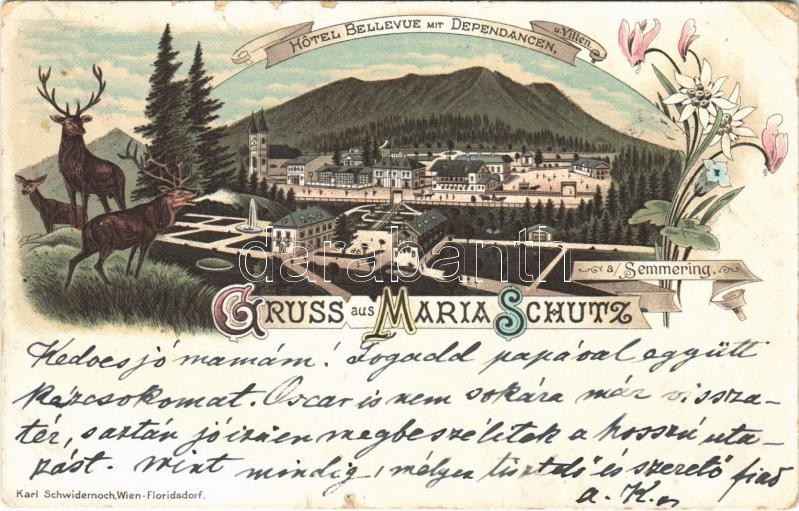 HÔTEL BELLEVUE MIT DEPENDANCEN,
u. Villen.
a/Semmering.
GRUSS aus MARIA SCHUTZ
darabanth
Kedves jó mamám! Fogadd papával együtt
kézcsokomat. Oscar is nem sokára már vissza-
tér, s aztán jóizüen megbeszélitek a hosszú uta-
zást. Mint mindig, mélyen tisztelő és szerető fiad
a. K.
Karl Schwidernoch, Wien-Floridsdorf.